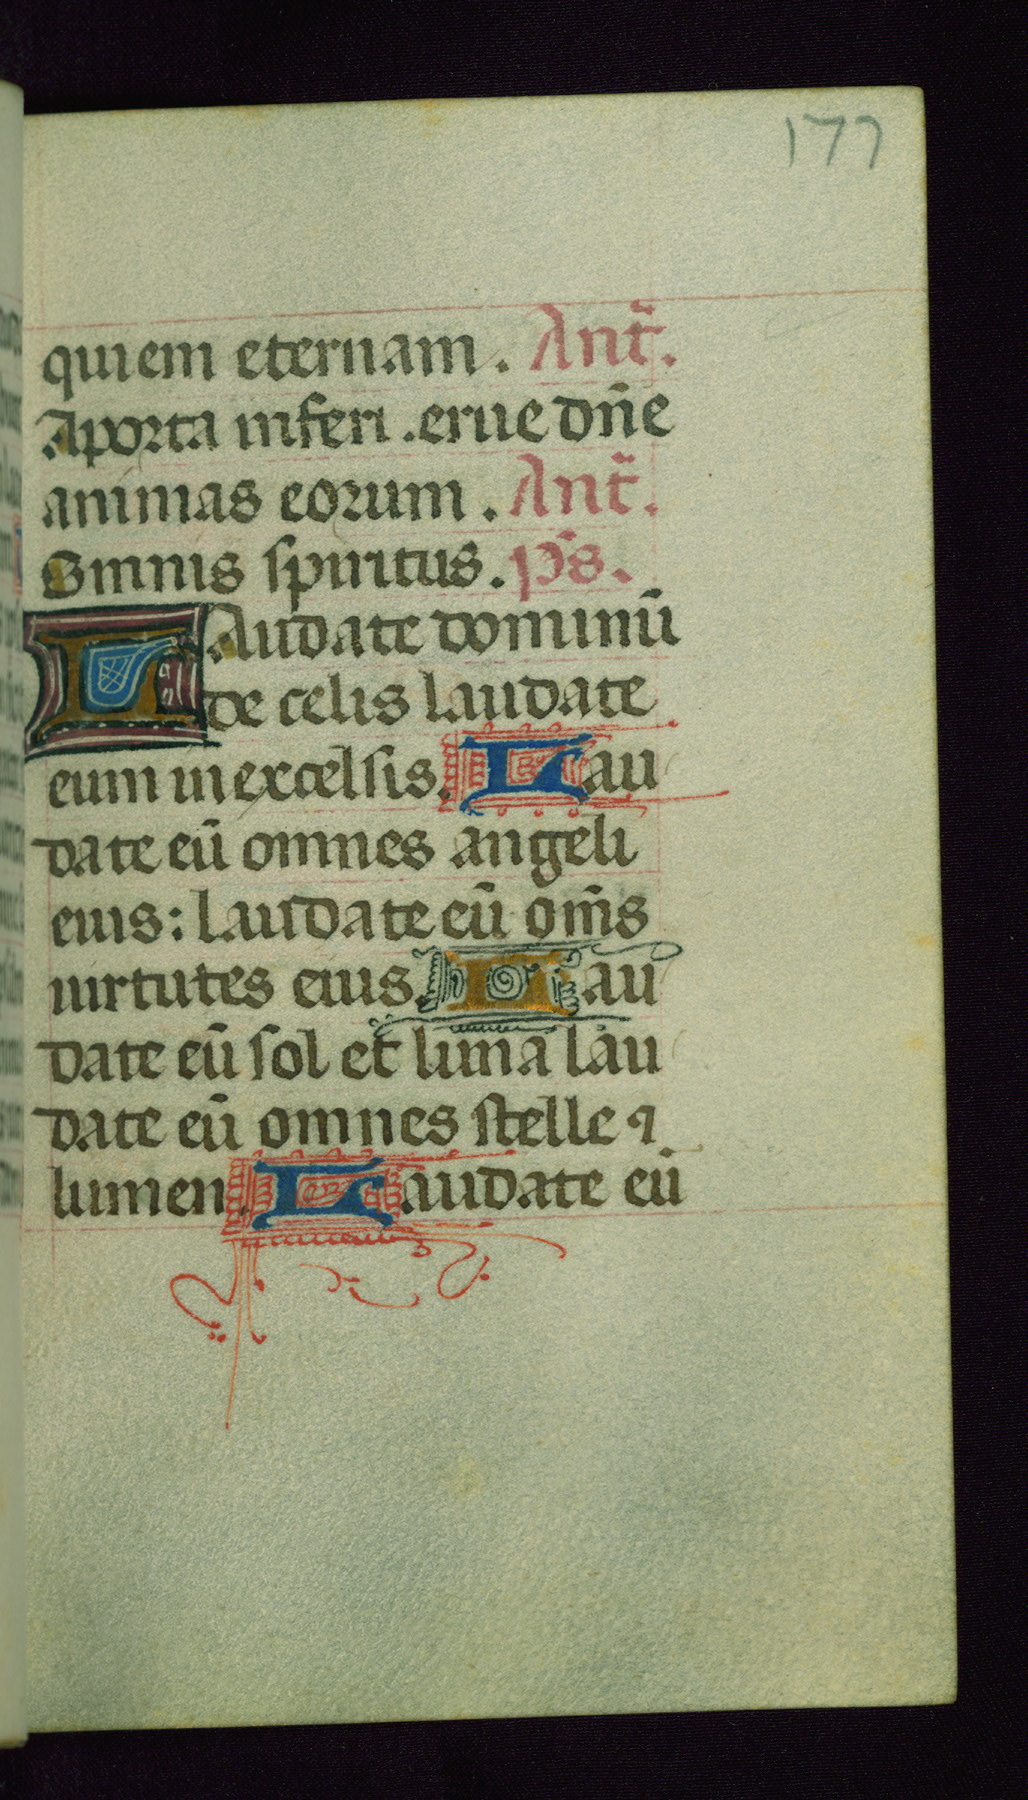 177
quiem eternam. Ant̃.
Aporta inferi .erue dñe
animas eorum. Ant̃.
Omnis spiritus. ps̄.
Laudate dominū
de celis laudate
eum in excelsis. Lau
date eū omnes angeli
eius: laudate eū om̄s
uirtutes eius. Lau
date eū sol et luna lau
date eū omnes stelle ⁊
lumen. Laudate eū